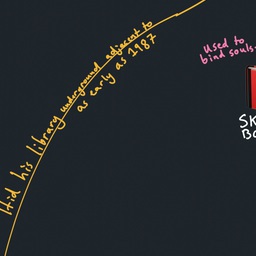 Hid his library underground adjacent to
as early as 1987
Used to
bind souls.
SK
BO